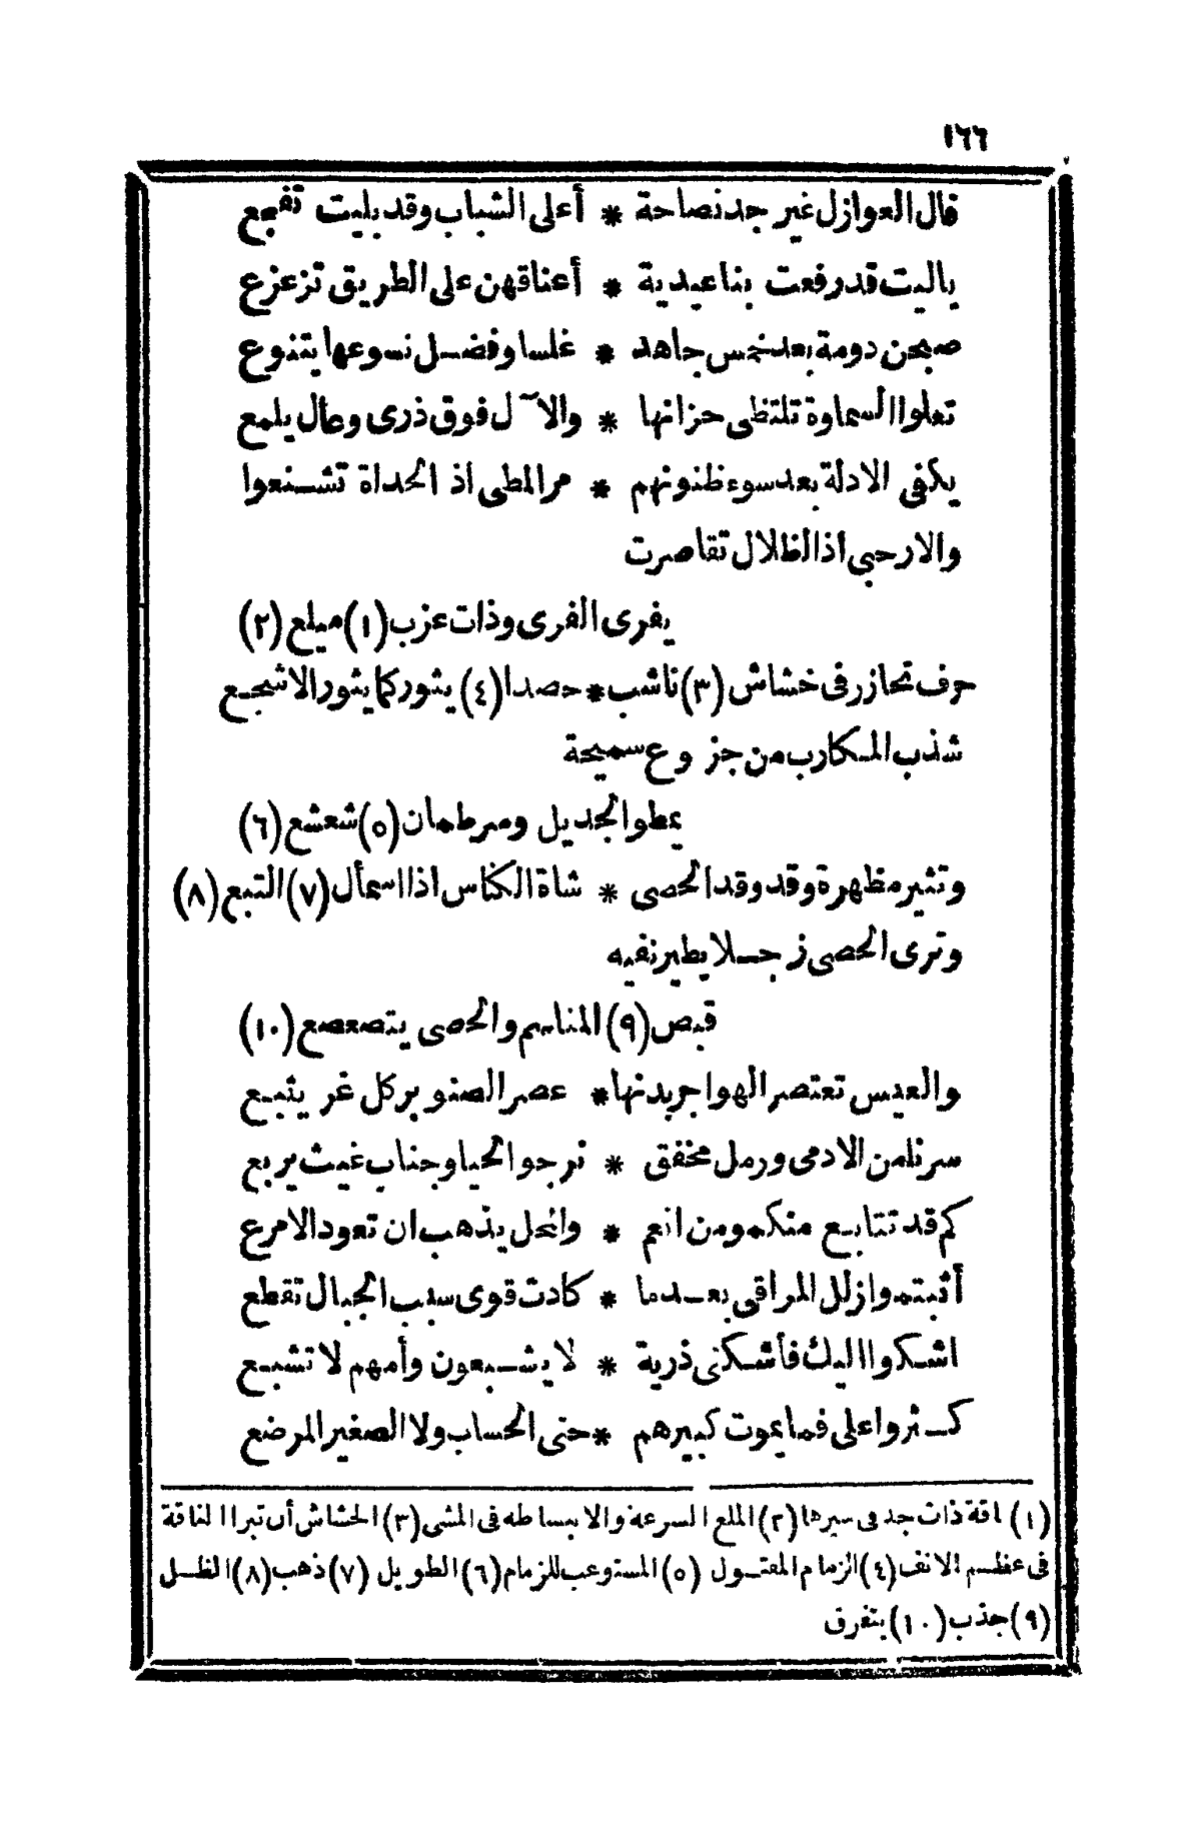 ١٦٦
قال العوازل غير جد نصاحة * أعلى الشباب وقد بليت تفجع
ياليت قد رفعت بنا عيدية * أعناقهن على الطريق تزعزع
صبحن دومة بعد خمس جاهد * غلسا وفضل نسوعها يتنوع
تعلوا السماوة تلتظى حزانها * والآل فوق ذرى وعال يلمع
يكفى الادلة بعد سوء ظنونهم * مر المطى اذ الحداة تشنعوا
والارحبى اذا الظلال تقاصرت
يفرى الفرى وذات عزب (١) ميلع (٢)
حرف تحاذر فى خشاش (٣) ناشب * حصدا (٤) يثور كما يثور الاشجع
شذب المكارب من جزوع سميحة
يمطو الجديل ومرطمان (٥) شعشع (٦)
وتثير مظهرة وقد وقد الحصى * شاة الكناس اذا اسمأل (٧) التبع (٨)
وترى الحصى زجلا يطير نفيه
قبص (٩) المناسم والحصى يتصعصع (١٠)
والعيس تعتصر الهواجر بدنها * عصر الصنوبر كل غر ينبع
سرنا من الادمى ورمل مخفق * نرجو الحيا وجناب غيث يربع
كم قد تتابع منكمو من انعم * والمحل يذهب ان تعود الامرع
أثبتموا زلل المراقى بعدما * كادت قوى سبب الحبال تقطع
اشكوا اليك فأشكنى ذرية * لا يشبعون وأمهم لا تشبع
كثروا على فما يموت كبيرهم * حتى الحساب ولا الصغير المرضع
(١) ناقة ذات جد فى سيرها (٢) الملع السرعة والابساطه فى المشى (٣) الخشاش أن تبرا الناقة
فى عظم الانف (٤) الزمام المفتول (٥) المستوعب للزمام (٦) الطويل (٧) ذهب (٨) الظل
(٩) جذب (١٠) يتفرق